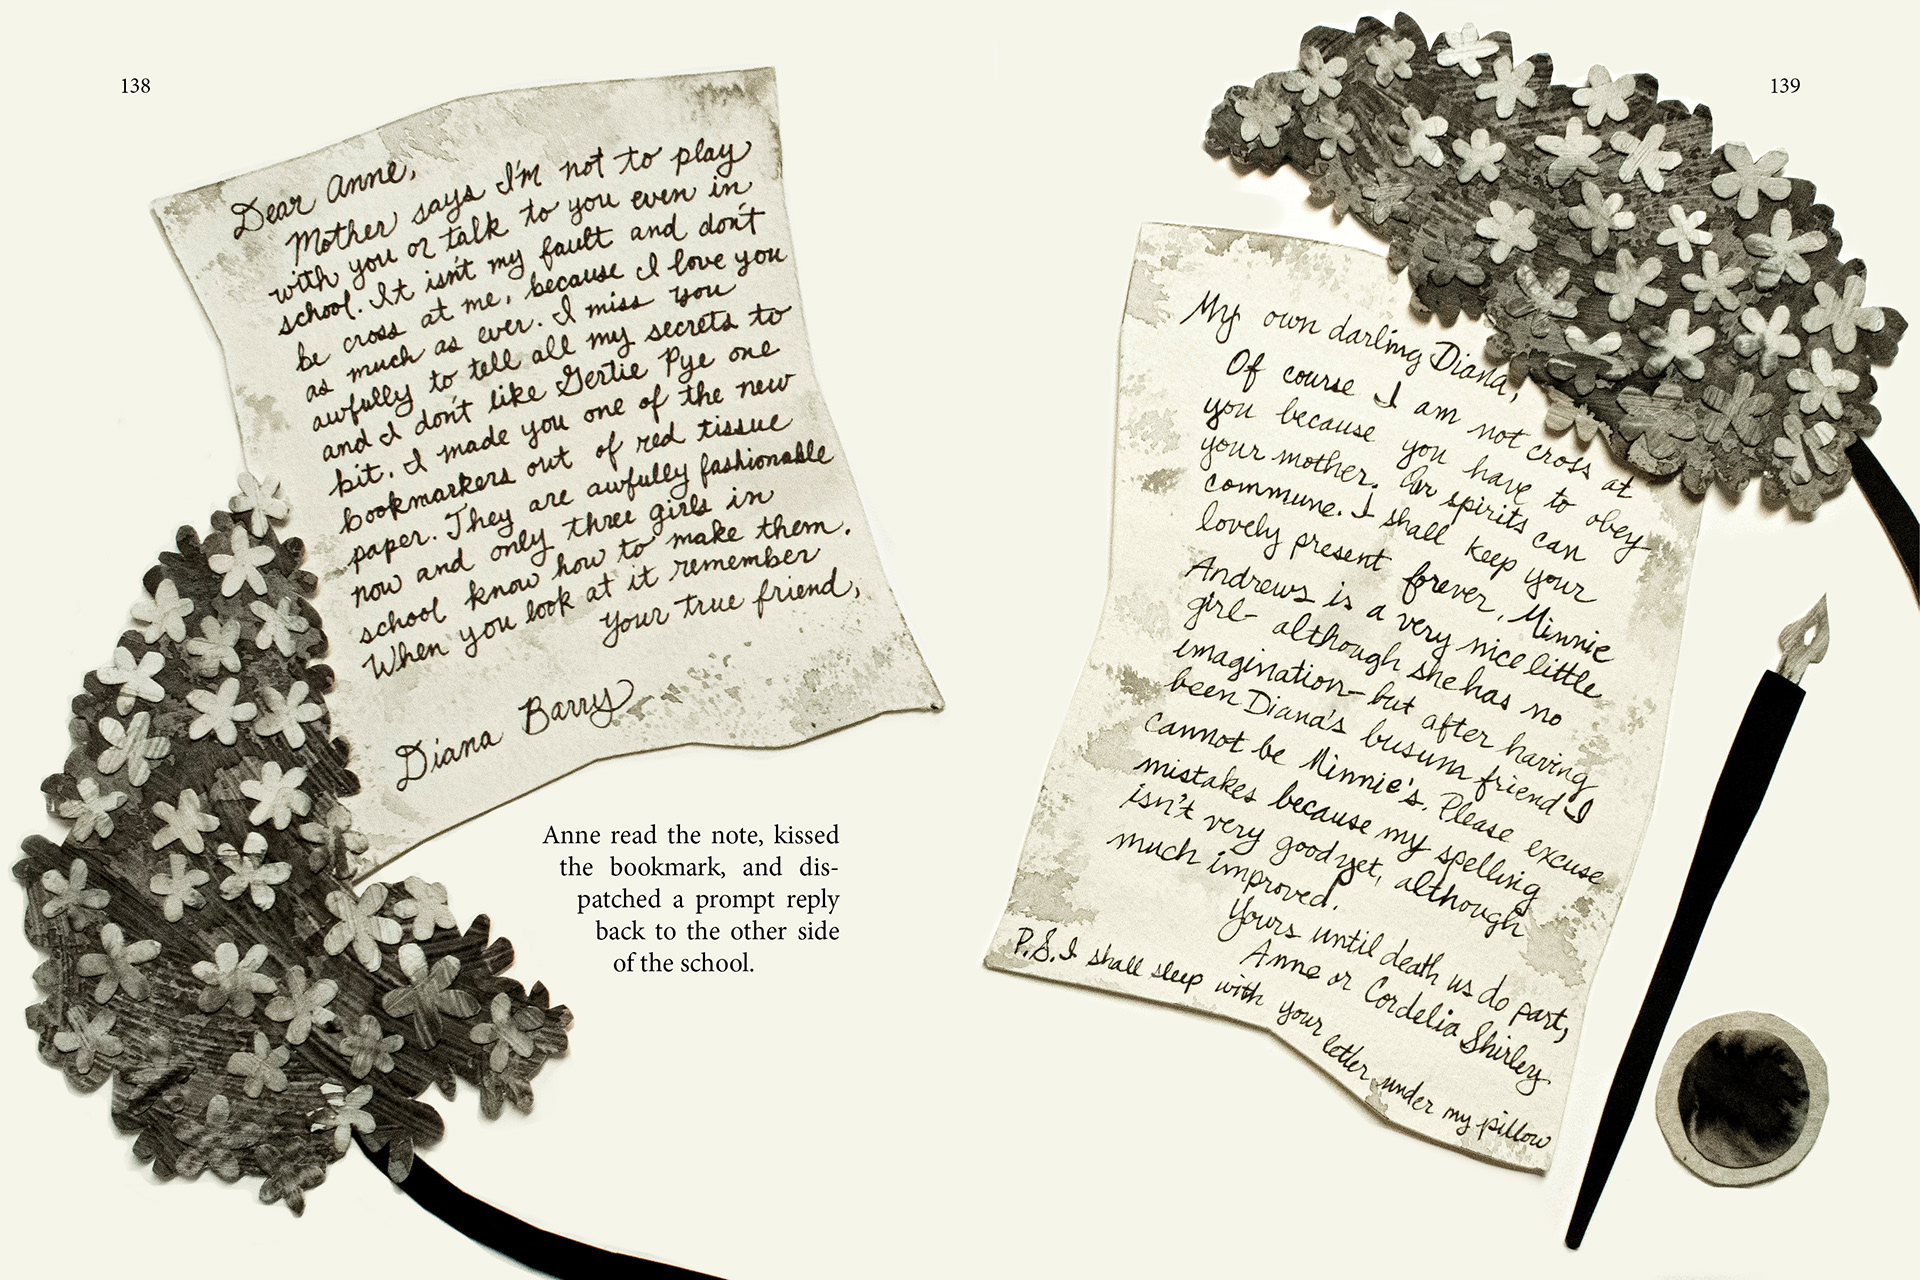 138
Dear Anne,
Mother says I'm not to play
with you or talk to you even in
school. It isn't my fault and don't
be cross at me, because I love you
as much as ever. I miss you
awfully to tell all my secrets to
and I don't like Gertie Pye one
bit. I made you one of the new
bookmarkers out of red tissue
paper. They are awfully fashionable
now and only three girls in
school know how to make them.
When you look at it remember
Your true friend,
Diana Barry
Anne read the note, kissed
the bookmark, and dis-
patched a prompt reply
back to the other side
of the school.
139
My own darling Diana,
Of course I am not cross at
you because you have to obey
your mother. Our spirits can
commune. I shall keep your
lovely present forever. Minnie
Andrews is a very nice little
girl- although she has no
imagination- but after having
been Diana's busum friend I
cannot be Minnie's. Please excuse
mistakes because my spelling
isn't very good yet, although
much improved.
Yours until death us do part,
Anne or Cordelia Shirley
P.S. I shall sleep with your letter under my pillow